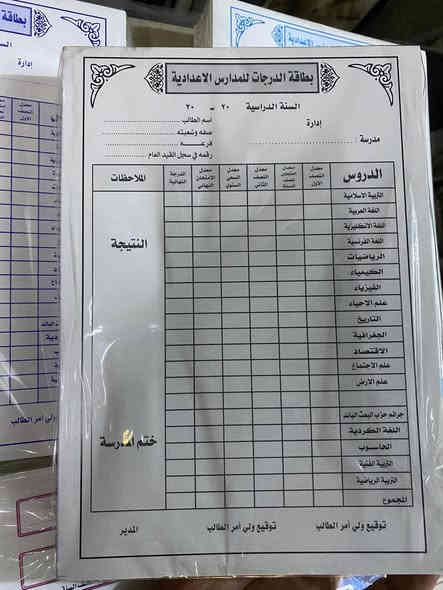 بطاقة الدرجات للمدارس الاعدادية
السنة الدراسية ٢٠ - ٢٠
ادارة
مدرسة :
اسم الطالب
صفه وشعبته
فرعه
رقمه في سجل القيد العام
الدروس
معدل النصف الأول
معدل امتحان نصف السنة
معدل النصف الثاني
معدل السعي السنوي
معدل الامتحان النهائي
الدرجة النهائية
الملاحظات
التربية الاسلامية
اللغة العربية
اللغة الانكليزية
اللغة الفرنسية
الرياضيات
الكيمياء
الفيزياء
علم الاحياء
التاريخ
الجغرافية
الاقتصاد
علم الاجتماع
علم الارض
جرائم حزب البعث البائد
اللغة الكردية
الحاسوب
التربية الفنية
التربية الرياضية
المجموع
النتيجة
ختم المدرسة
توقيع ولي أمر الطالب
توقيع ولي أمر الطالب
المدير
بطاقة
ادارة
ولي أمر الطالب